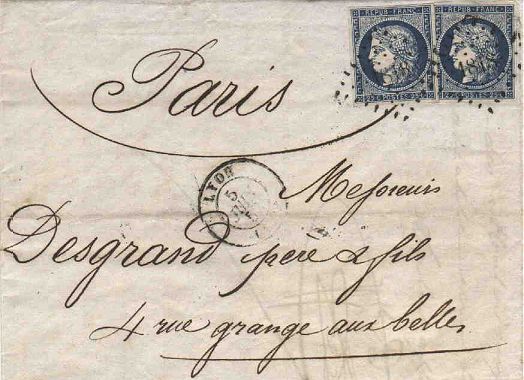 REPUB. FRANC. REPUB. FRANC.
25 C POSTES 25 C POSTES
Paris
LYON
5
Messieurs
Desgrand père & fils
4 rue grange aux belles